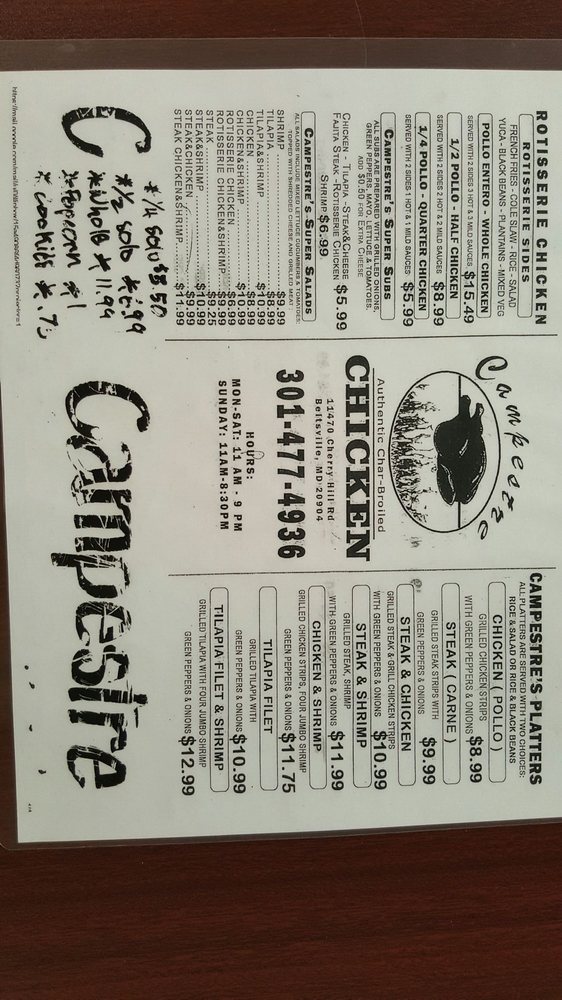 ROTISSERIE CHICKEN
ROTISSERIE SIDES
FRENCH FRIES - COLE SLAW - RICE - SALAD
YUCA - BLACK BEANS - PLANTAINS - MIXED VEG
POLLO ENTERO - WHOLE CHICKEN
SERVED WITH 2 SIDES 3 HOT & 3 MILD SAUCES $15.49
1/2 POLLO - HALF CHICKEN
SERVED WITH 2 SIDES 2 HOT & 2 MILD SAUCES $8.99
1/4 POLLO - QUARTER CHICKEN
SERVED WITH 2 SIDES 1 HOT & 1 MILD SAUCES $5.99
CAMPESTRE'S SUPER SUBS
ALL SUBS ARE PREPARED WITH GRILLED ONIONS,
GREEN PEPPERS, MAYO, LETTUCE & TOMATOES.
ADD $0.50 FOR EXTRA CHEESE
CHICKEN - TILAPIA - STEAK&CHEESE
FAJITA STEAK - ROTISSERIE CHICKEN $5.99
SHRIMP $6.99
CAMPESTRE'S SUPER SALADS
ALL SALADS INCLUDE MIXED LETTUCE CUCUMBERS & TOMATOES:
TOPPED WITH SHREDDED CHEESE AND GRILLED MEAT:
SHRIMP $9.99
TILAPIA $8.99
TILAPIA&SHRIMP $10.99
CHICKEN $8.99
CHICKEN&SHRIMP $10.99
ROTISSERIE CHICKEN $8.99
ROTISSERIE CHICKEN&SHRIMP $9.99
STEAK $9.25
STEAK&SHRIMP $10.99
STEAK&CHICKEN $9.99
STEAK CHICKEN&SHRIMP $11.99
* 1/4 solo $3.50
* 1/2 solo * 6.99
* Whole * 11.99
* cookies *
Campestre
CHICKEN
Authentic Char-Broiled
11470 Cherry Hill Rd
Beltsville, MD 20904
301-477-4936
HOURS:
MON-SAT: 11 AM - 9 PM
SUNDAY: 11AM-8:30PM
CAMPESTRE'S PLATTERS
ALL PLATTERS ARE SERVED WITH TWO CHOICES:
RICE & SALAD OR RICE & BLACK BEANS
CHICKEN ( POLLO )
GRILLED CHICKEN STRIPS
WITH GREEN PEPPERS & ONIONS $8.99
STEAK ( CARNE )
GRILLED STEAK STRIPS WITH
GREEN PEPPERS & ONIONS $9.99
STEAK & CHICKEN
GRILLED STEAK & GRILL CHICKEN STRIPS
WITH GREEN PEPPERS & ONIONS $10.99
STEAK & SHRIMP
GRILLED STEAK, SHRIMP
WITH GREEN PEPPERS & ONIONS $11.99
CHICKEN & SHRIMP
GRILLED CHICKEN STRIPS, FOUR JUMBO SHRIMP
GREEN PEPPERS & ONIONS $11.75
TILAPIA FILET
GRILLED TILAPIA WITH
GREEN PEPPERS & ONIONS $10.99
TILAPIA FILET & SHRIMP
GRILLED TILAPIA WITH FOUR JUMBO SHRIMP
GREEN PEPPERS & ONIONS $12.99
C Campestre